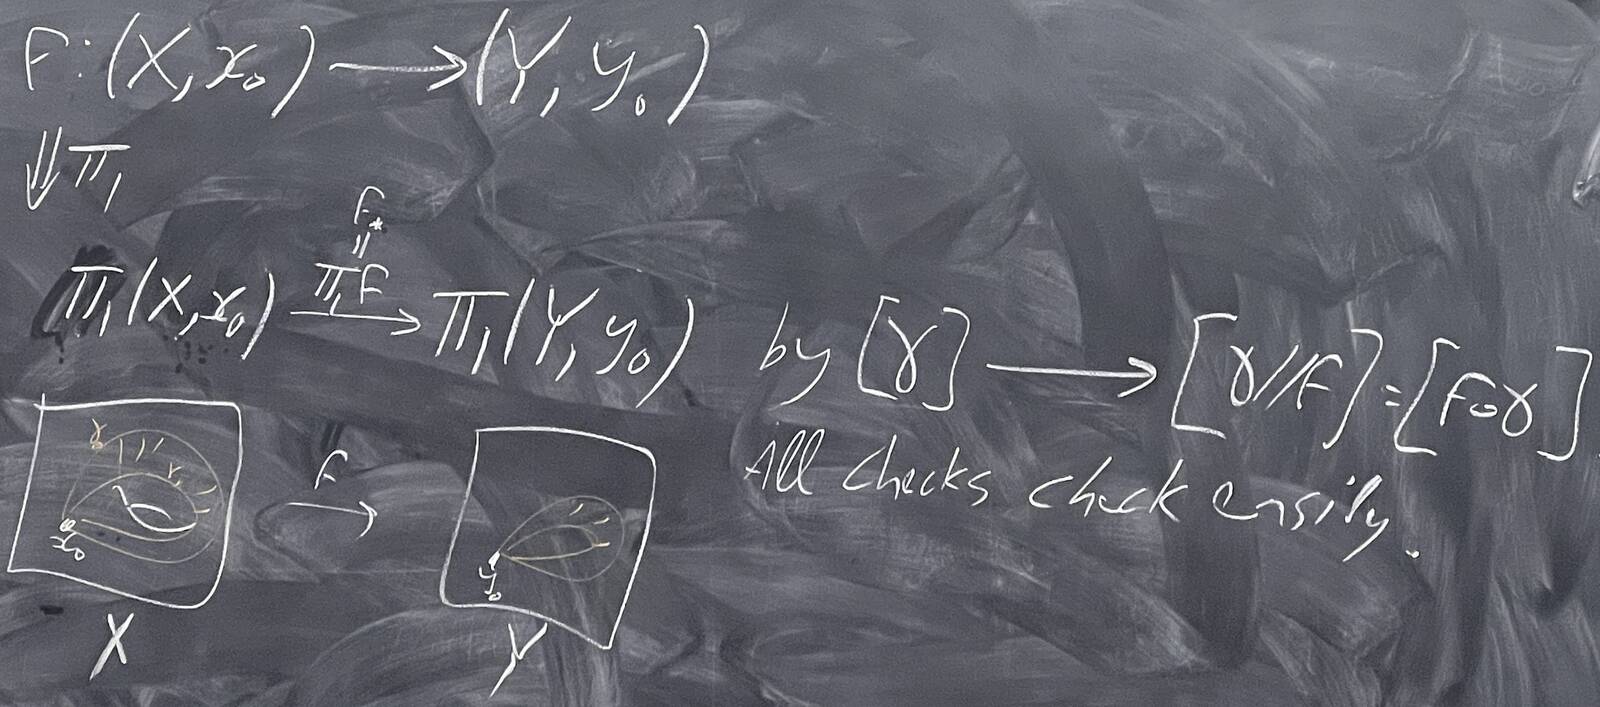 F: (X, x₀) ⟶ (Y, y₀)
⇓ π₁
F_*
||
π₁(X, x₀) —π₁F→ π₁(Y, y₀) by [γ] ⟶ [γ//F] = [F∘γ]
All checks check easily.
γ
F
x₀
y₀
X
Y